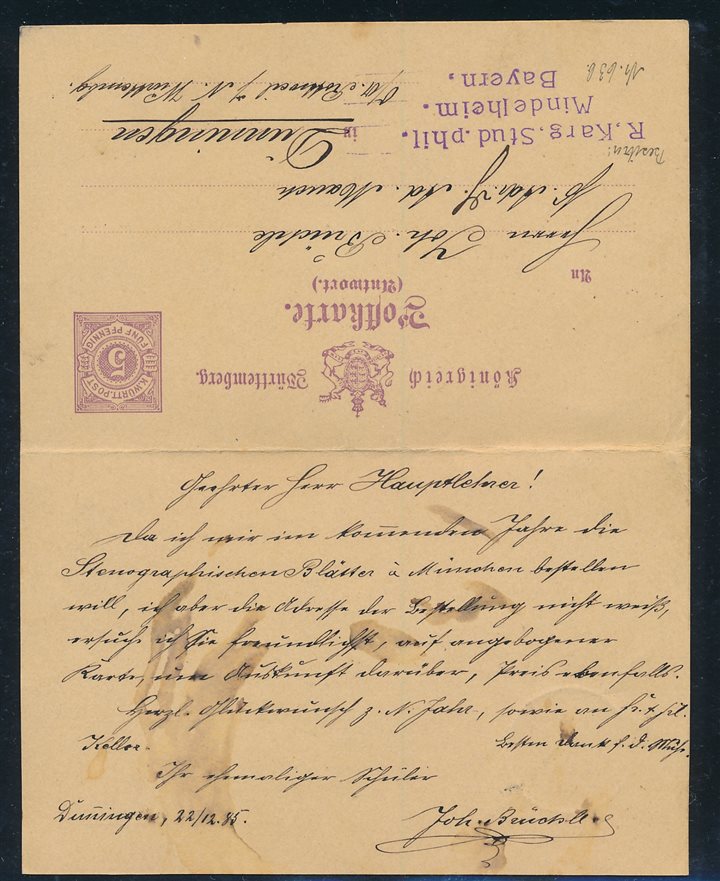 Königreich Württemberg.
Postkarte.
(Antwort.)
K.WÜRTT.POST
5
FÜNF PFENNIG
An
Herrn Joh. Brüchle
Ad. Mauch
in Dunningen
O/A. Rottweil a/N. Württembg.
R. Karg. Stud. phil.
Mindelheim.
Bayern.
Geehrter Herr Hauptlehrer!
Da ich mir im kommenden Jahre die
Stenographischen Blätter à München bestellen
will, ich aber die Adresse der Bestellung nicht weiß,
ersuche ich Sie freundlichst, auf angebogener
Karte um Auskunft darüber, Preis ebenfalls.
Herzl. Glückwunsch z. N. Jahr, sowie an
Keller.
Besten Dank f. d. Mühe.
Ihr ehemaliger Schüler
Dunningen, 22/12.85.
Joh. Brüchle